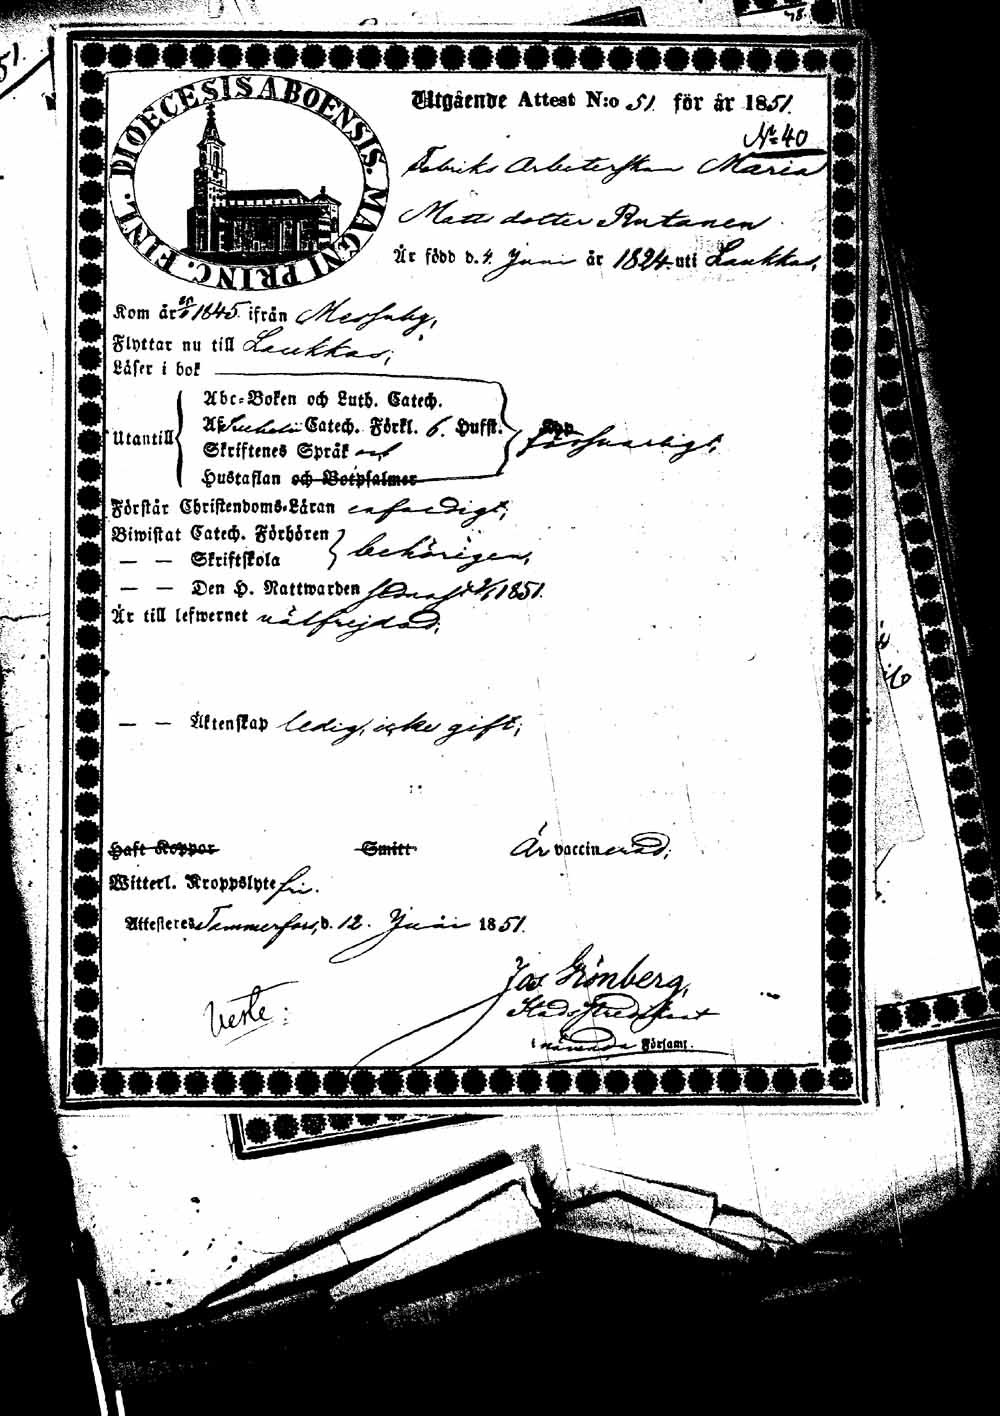 51.
DIOECESIS ABOENSIS. MAGNI PRINC. FINL.
Utgående Attest N:o 51. för år 1851.
No 40
Fabriks Arbeterskan Maria
Matts dotter Rutanen
Är född d. 4. Juni år 1824 uti Laukkas,
Kom år 1845 ifrån Messuby,
Flyttar nu till Laukkas;
Läser i bok
Utantill
Abc-Boken och Luth. Catech.
Catech. Förkl. 6. Hufst.
Skriftenes Språk och
Hustaflan och Botpsalmer
försvarligt;
Förstår Christendoms-Läran enfaldigt;
Biwistat Catech. Förhören
— — Skriftskola
behörigen,
— — Den H. Nattwarden sednast 1851.
Är till lefwernet välfrejdad;
— — Äktenskap ledig, icke gift;
Haft Koppor Smitt Är vaccinerad;
Witterl. Kroppslyte fri.
Attesteres Tammerfors, d. 12. Juni 1851.
Jos Grönberg,
i Församl.